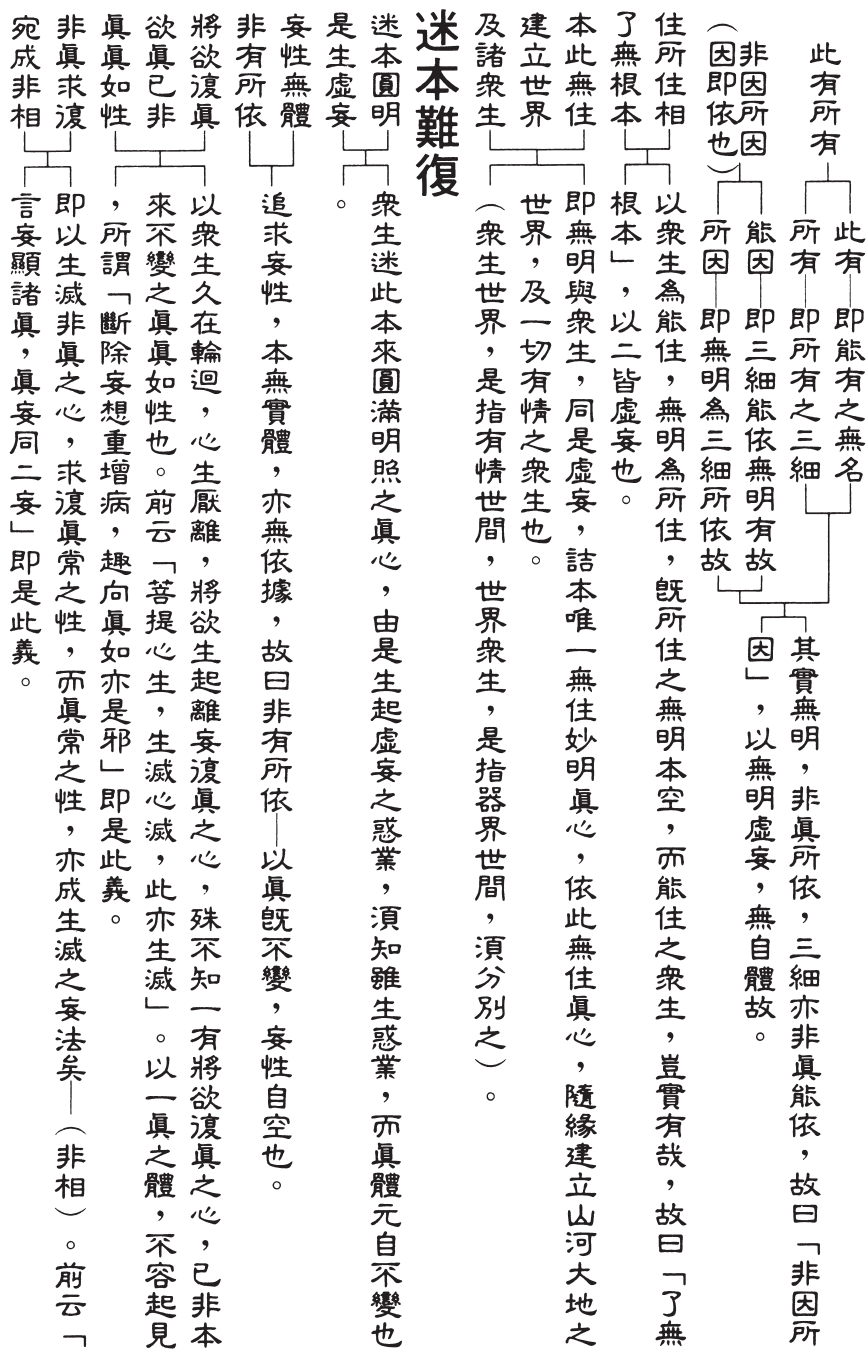 此有所有
此有｜即能有之無名
所有｜即所有之三細
非因所因
（因即依也）
能因｜即三細能依無明有故
所因｜即無明為三細所依故
其實無明，非眞所依，三細亦非眞能依，故曰「非因所
因」，以無明虛妄，無自體故。
住所住相
了無根本
以衆生為能住，無明為所住，旣所住之無明本空，而能住之衆生，豈實有哉，故曰「了無
根本」，以二皆虛妄也。
本此無住
建立世界
及諸衆生
即無明與衆生，同是虛妄，詰本唯一無住妙明眞心，依此無住眞心，隨緣建立山河大地之
世界，及一切有情之衆生也。
（衆生世界，是指有情世間，世界衆生，是指器界世間，須分別之）。
迷本難復
迷本圓明
是生虛妄
衆生迷此本來圓滿明照之眞心，由是生起虛妄之惑業，須知雖生惑業，而眞體元自不變也
。
妄性無體
非有所依
追求妄性，本無實體，亦無依據，故曰非有所依—以眞旣不變，妄性自空也。
將欲復眞
欲眞已非
眞眞如性
以衆生久在輪迴，心生厭離，將欲生起離妄復眞之心，殊不知一有將欲復眞之心，已非本
來不變之眞眞如性也。前云「菩提心生，生滅心滅，此亦生滅」。以一眞之體，不容起見
，所謂「斷除妄想重增病，趣向眞如亦是邪」即是此義。
非眞求復
宛成非相
即以生滅非眞之心，求復眞常之性，而眞常之性，亦成生滅之妄法矣—（非相）。前云「
言妄顯諸眞，眞妄同二妄」即是此義。